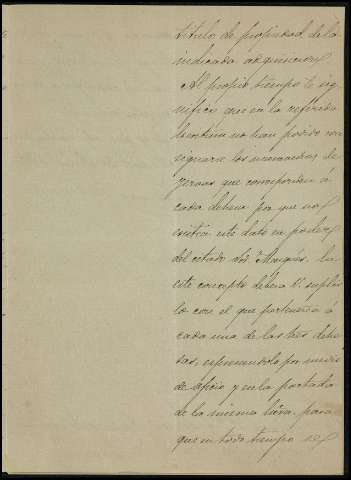 titulo de propiedad de la
indicada adquisicion
Al propio tiempo te sig
nifico que en la referida
escritura no han podido con
signarse los numeros de
que corresponden á
cada dehesa por que no
existia este dato en poder
del estado del Marqués. En
este concepto deberá V. suplir
lo con el que pertenecia á
cada una de las tres dehe
sas, expresandolo por medio
de oficio y en la portada
de la misma , para
que en todo tiempo se